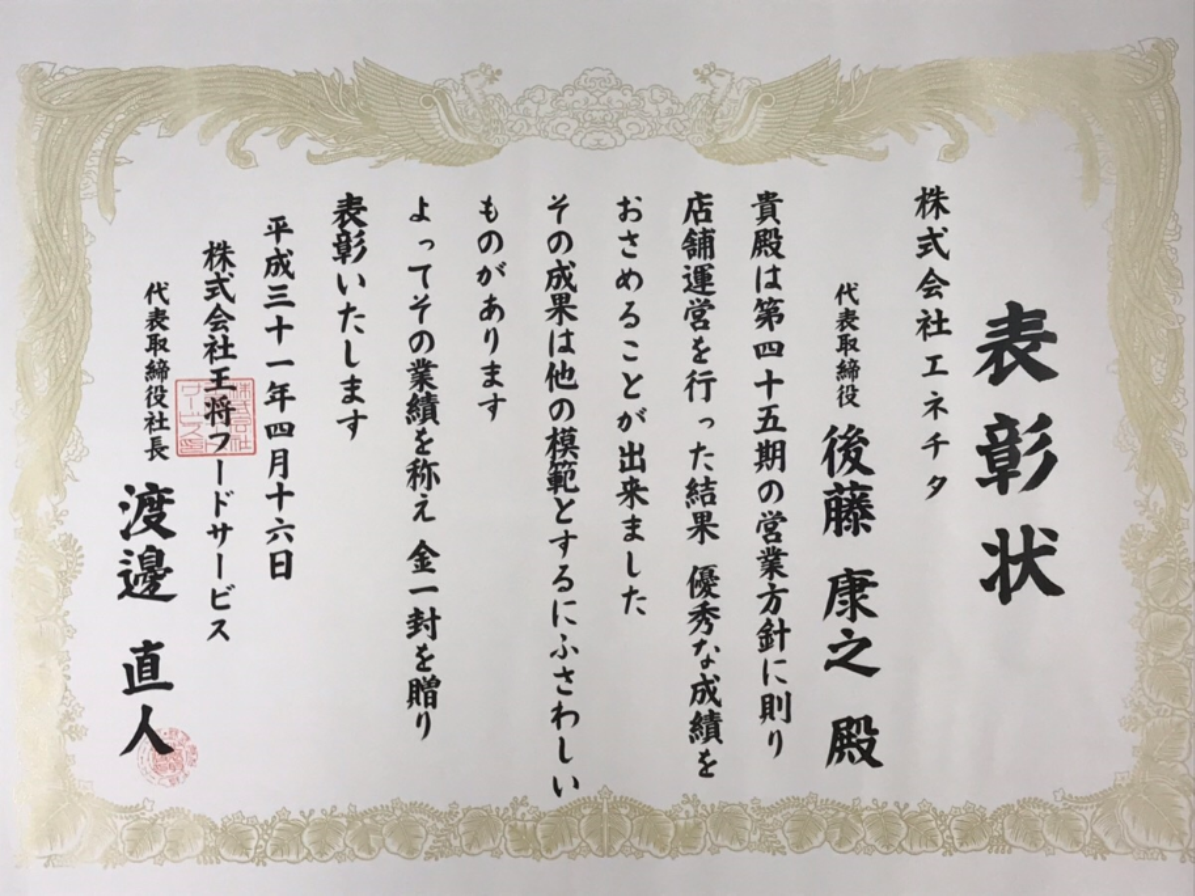 表彰状
株式会社エネチタ
代表取締役 後藤 康之 殿
貴殿は第四十五期の営業方針に則り
店舗運営を行った結果 優秀な成績を
おさめることが出来ました
その成果は他の模範とするにふさわしい
ものがあります
よってその業績を称え 金一封を贈り
表彰いたします
平成三十一年四月十六日
株式会社王将フードサービス
代表取締役社長 渡邊 直人